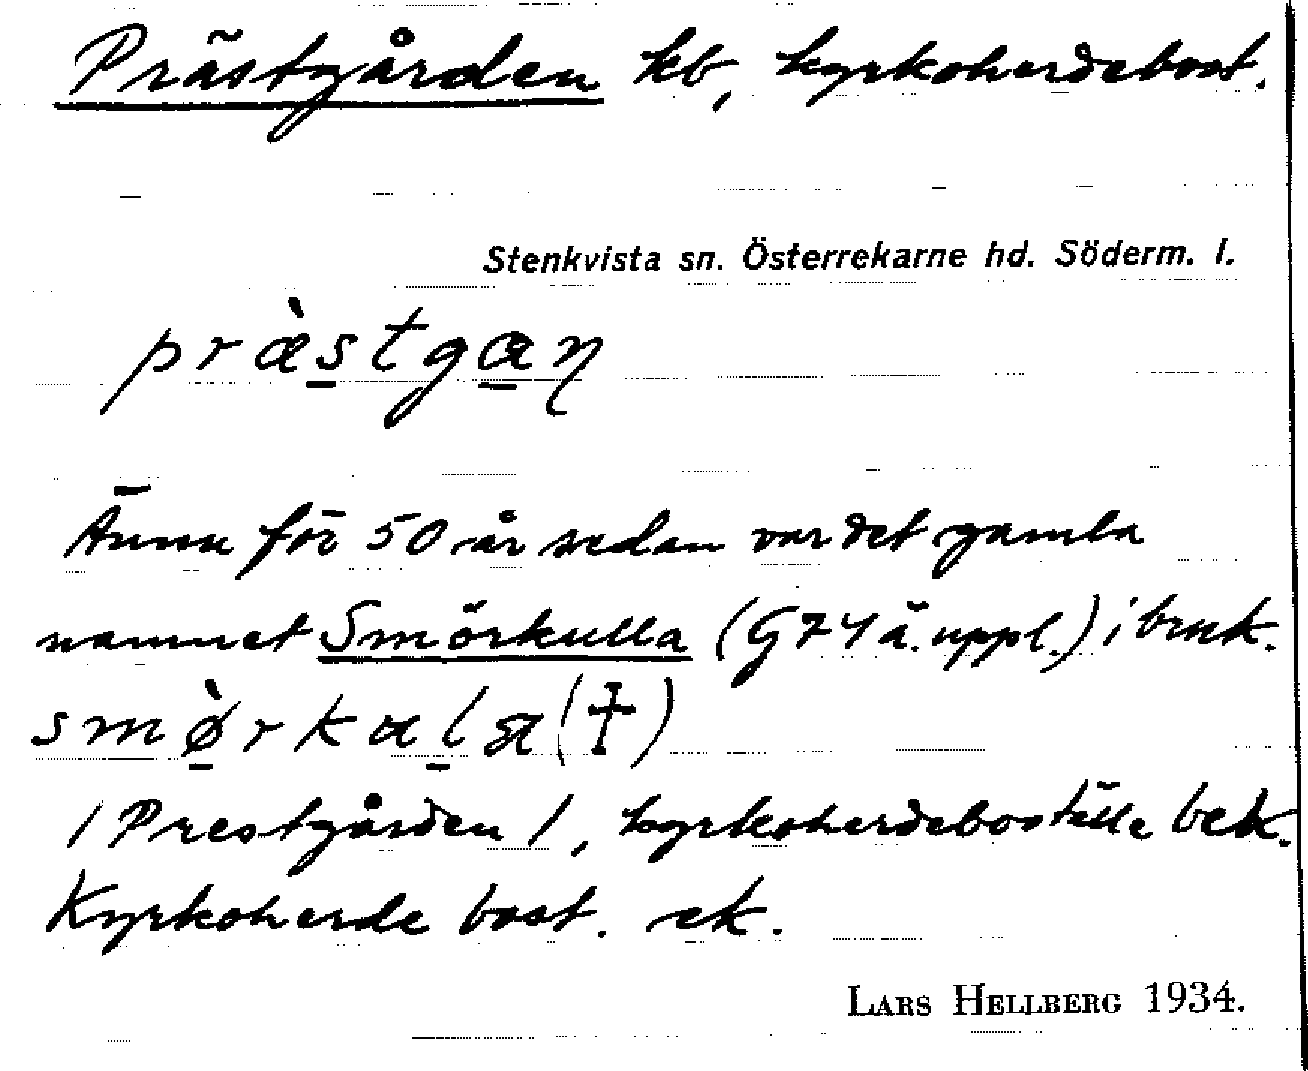 Prästgården kb, kyrkoherdebost.
Stenkvista sn. Österrekarne hd. Söderm. l.
præ̀stgaɳ
Ännu för 50 år sedan var det gamla
namnet Smörkulla (G 74 ä. uppl.) i bruk.
smø̀rkala (†)
/Prestgården/, kyrkoherdeboställe bek.
Kyrkoherde bost. ek.
LARS HELLBERG 1934.